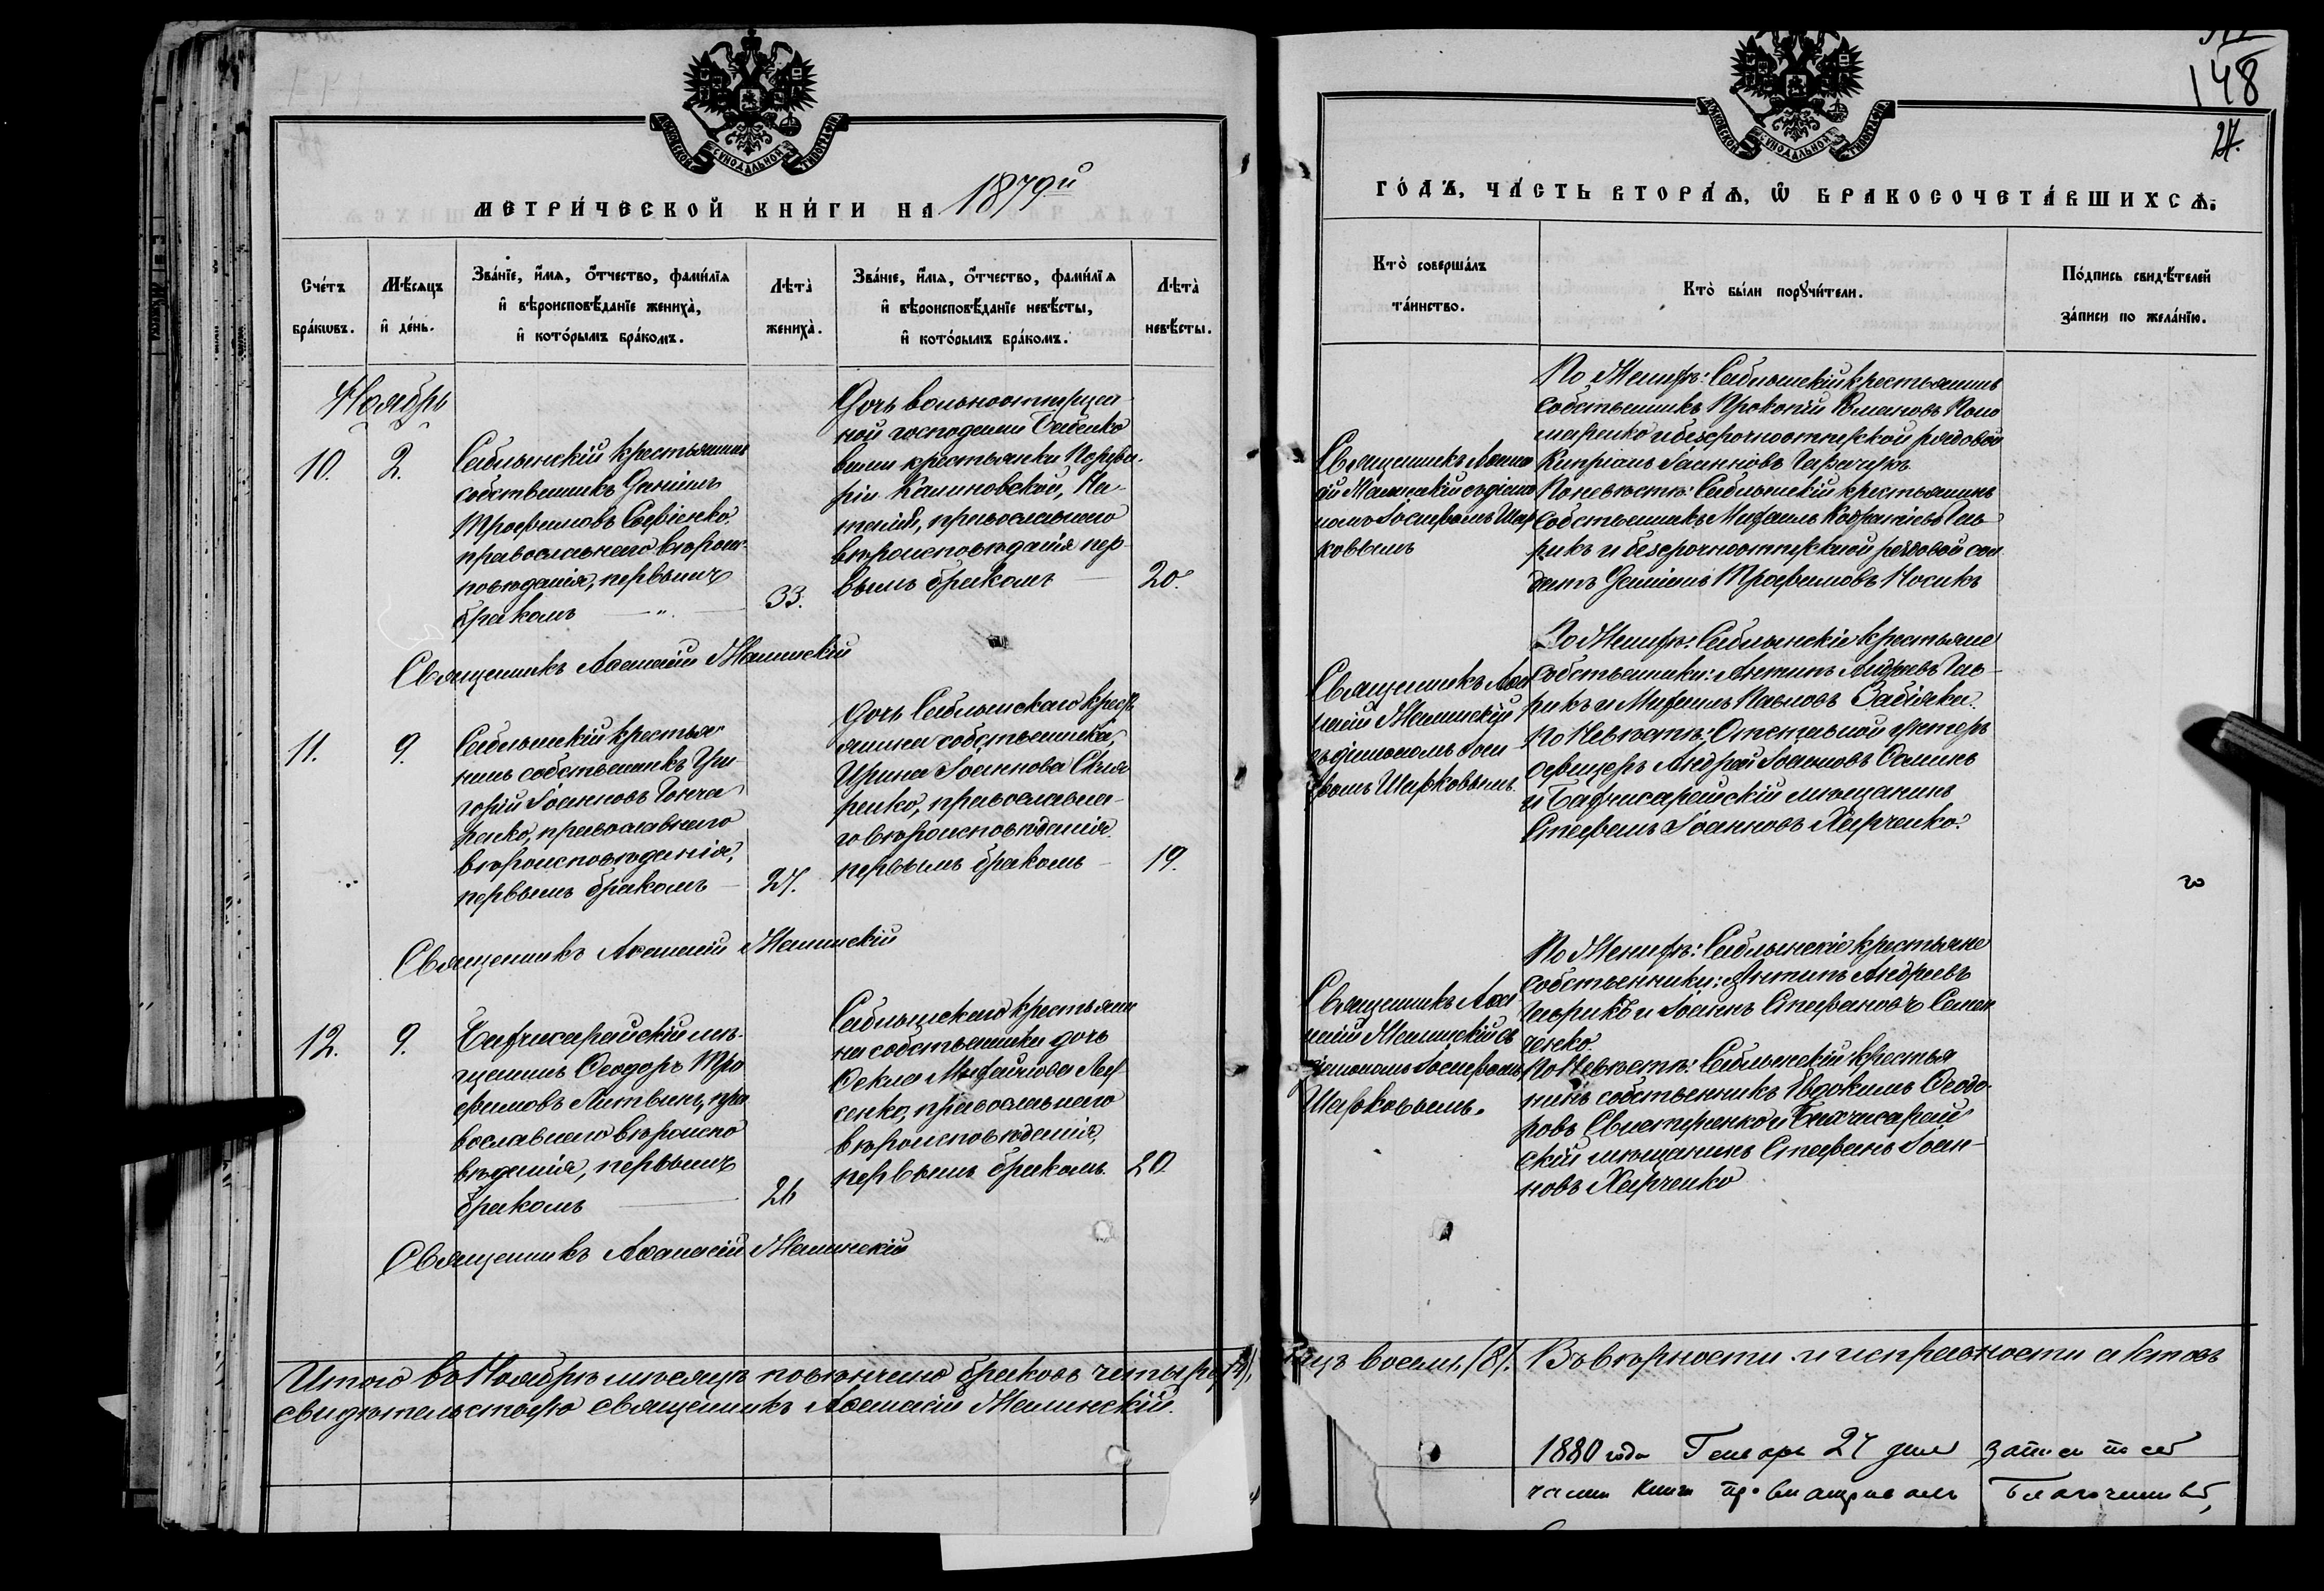 148
27.
МОСКОВСКОЙ СУНОДАЛЬНОЙ ТИПОГРАФІИ
МОСКОВСКОЙ СУНОДАЛЬНОЙ ТИПОГРАФІИ
МЕТРИ́ЧЕСКОЙ КНИ́ГИ НА 1879й
ГО́ДЪ, ЧА́СТЬ ВТОРА́Ѧ, Ѡ БРАКОСОЧЕТА́ВШИХСѦ:
Сче́тъ бра́кѡвъ.
Мѣ́сяцъ и҆ де́нь.
Зва́нїе, и҆́мѧ, ѻ҆́тчество, фами́лїѧ
и҆ вѣроисповѣ́данїе жениха̀,
и҆ кото́рымъ бра́комъ.
Лѣта̀ жениха̀.
Зва́нїе, и҆́мѧ, ѻ҆́тчество, фами́лїѧ
и҆ вѣроисповѣ́данїе невѣ́сты,
и҆ кото́рымъ бра́комъ.
Лѣта̀ невѣ́сты.
Кто̀ соверша́лъ
та́инство.
Кто̀ бы́ли порꙋчи́тели.
По́дпись свидѣ́телей
за́писи по жела́нїю.
Ноябрь
10.
2.
Саблынскій крестьянинъ
собственникъ Даніилъ
Трофимовъ Софіенко,
православнаго вѣроис-
повѣданія, первымъ
бракомъ
33.
Дочь вольноотпущен-
ной господами
крестьянки
Калиновской,
православнаго
вѣроисповѣданія пер-
вымъ бракомъ
20.
Священникъ Аѳана
сій Жалинскій съ діако
номъ Іосифомъ Шар
ковымъ
По Женихѣ: Саблынскій крестьянинъ
собственникъ Прокопій Романовъ Поно
маренко и безсрочноотпускной рядовой
Кипріанъ Іоанновъ
По невѣстѣ: Саблынскій крестьянинъ
собственникъ Михаилъ Кодратіевъ Гав
рикъ и безсрочноотпускной рядовой сол
датъ Даміанъ Трофимовъ Носикъ
Священникъ Аѳанасій Жалинскій
11.
9.
Саблынскій крестья-
нинъ собственникъ Гри
горій Іоанновъ Гонча
ренко, православнаго
вѣроисповѣданія,
первымъ бракомъ
27.
Дочь Саблынскаго крест
янина собственника,
Ирина Іоаннова Скля
ренко, православна-
го вѣроисповѣданія
первымъ бракомъ
19.
Священникъ Аѳа
насій Жалинскій
съ діакономъ Іоси
фомъ Шарковымъ
По Женихѣ: Саблынскіе крестьяне
собственники: Антипъ Андреевъ Гав-
рикъ и Михаилъ Павловъ Забіяка.
По Невѣстѣ: Отставной унтеръ
офицеръ Андрей Іоанновъ Осминъ
и Бахчисарайскій мѣщанинъ
Стефанъ Іоанновъ Харченко.
Священникъ Аѳанасій Жалинскій
12.
9.
Бахчисарайскій мѣ-
щанинъ Ѳеодоръ Тро
фимовъ Литвинъ, пра
вославнаго вѣроиспо
вѣданія, первымъ
бракомъ
26
Саблынскаго крестьяни
на собственника дочь
Ѳекла Михайлова Лы
сенко, православнаго
вѣроисповѣданія,
первымъ бракомъ.
20
Священникъ Аѳа
насій Жалинскій съ
діакономъ Іосифомъ
Шарковымъ.
По Женихѣ: Саблынскіе крестьяне
собственники: Антипъ Андреевъ
Гаврикъ и Іоаннъ Стефановъ Семен
ченко.
По Невѣстѣ: Саблынскій крестья
нинъ собственникъ Евдокимъ Ѳеодо
ровъ и Бахчисарай
скій мѣщанинъ Стефанъ Іоан-
новъ Харченко
Священникъ Аѳанасій Жалинскій
Итого въ Ноябрѣ мѣсяцѣ повѣнчано браковъ четыре (4),
лицъ восемь (8). Въ вѣрности и исправности актовъ
свидѣтельствую священникъ Аѳанасій Жалинскій.
1880 года Генваря 27 дня записи по сей
части книги